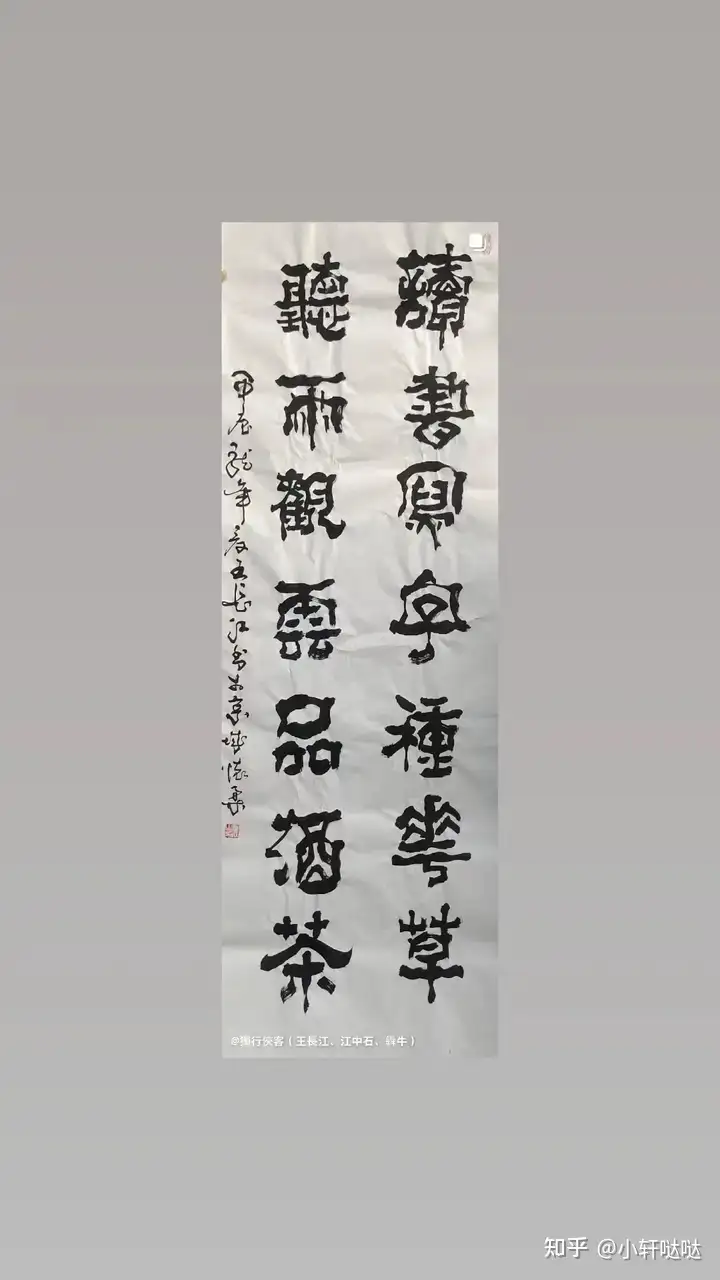 讀書寫字種花草
聽雨觀雲品酒茶
甲辰龍年夏王長江书于京城懷柔
@獨行俠客（王長江、江中石、犇牛）
知乎 @小轩哒哒